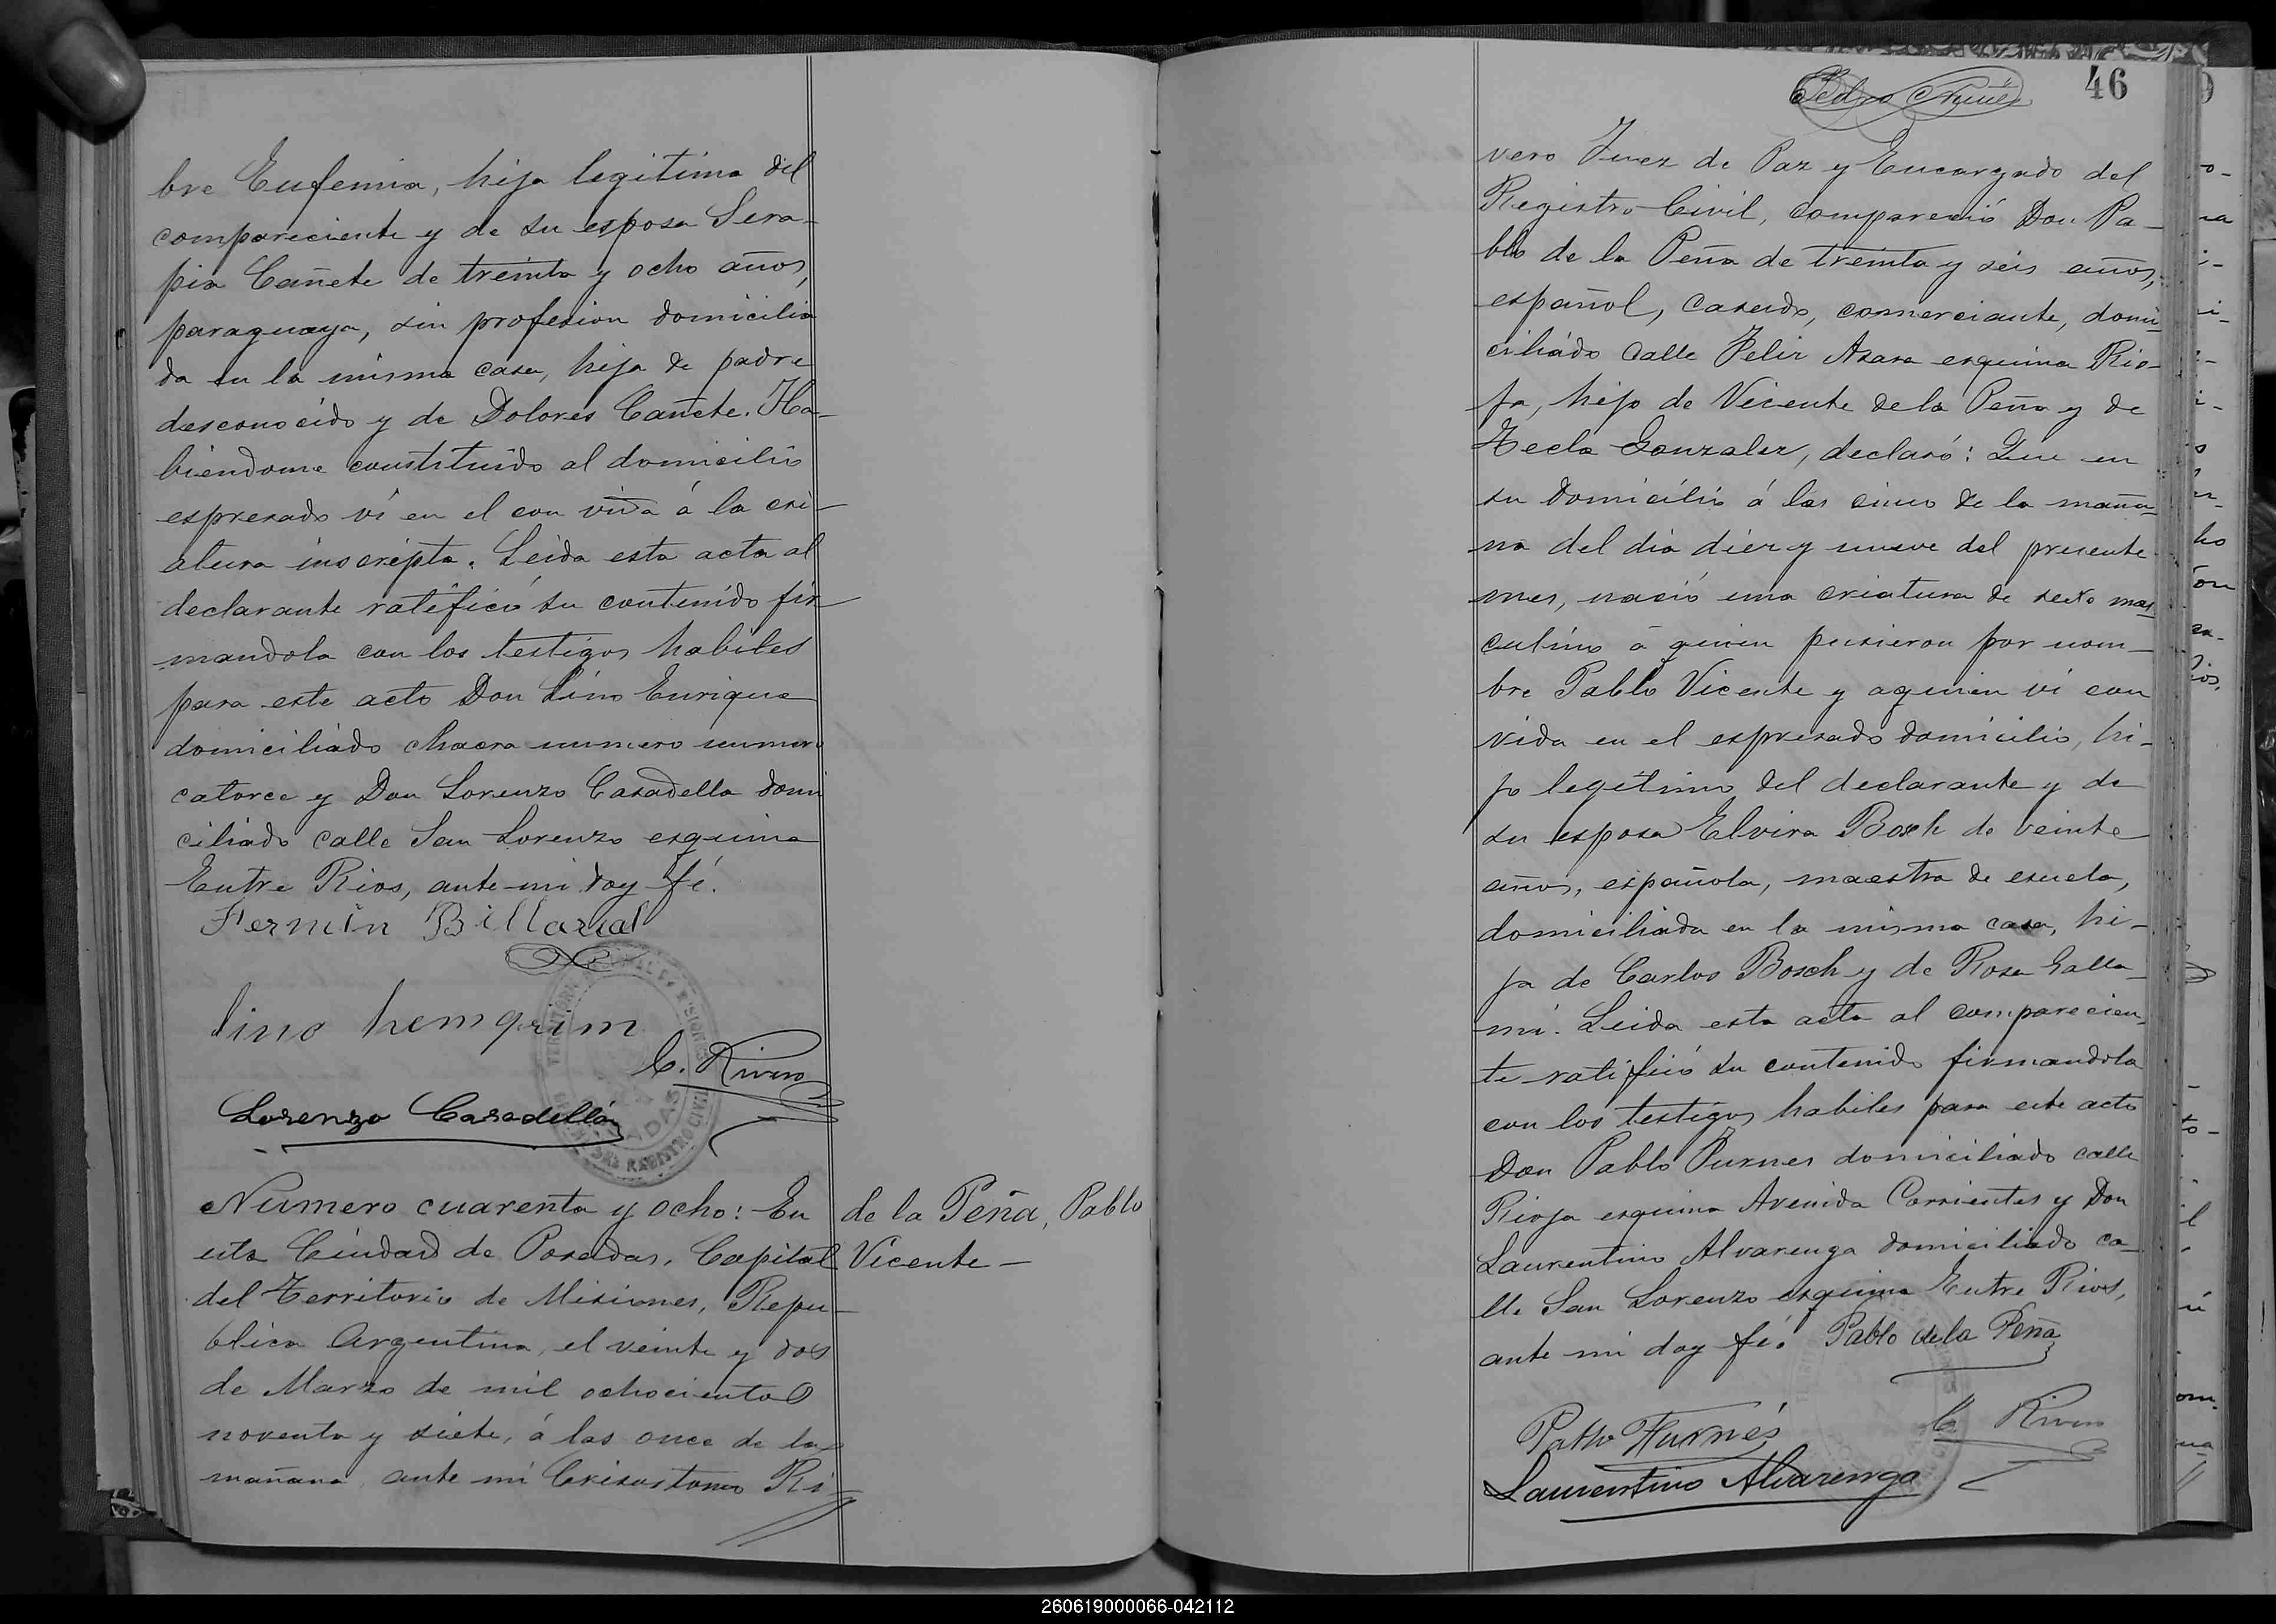 bre Eufemia, hija legitima del
compareciente y de su esposa Sera-
pia Cañete de treinta y ocho años,
paraguaya, sin profesion domicilia
da en la misma casa, hija de padre
desconocido y de Dolores Cañete. Ha-
biendome constituido al domicilio
espresado ví en el con vida á la cri-
atura inscripta. Leida esta acta al
declarante ratificó su contenido fir-
mandola con los testigos habiles
para este acto Don Lino Enrique
domiciliado chacra numero numero
catorce y Don Lorenzo Casadella domi
ciliado calle San Lorenzo esquina
Entre Rios, ante mi doy fé.
Fermin Billareal
lino hemqrim
C. Rivero
Lorenzo Casadellá
POSADAS
Numero cuarenta y ocho: En
esta Ciudad de Posadas, Capital
del Territorio de Misiones, Repu-
blica Argentina, el veinte y dos
de Marzo de mil ochocientos
noventa y siete, á las once de la
mañana, ante mi Crisostomo Ri-
de la Peña, Pablo
Vicente -
Pedro Nuñez
46
vero Juez de Paz y Encargado del
Registro Civil, compareció Don Pa-
blo de la Peña de treinta y seis años,
español, casado, comerciante, domi-
ciliado calle Felix Azara esquina Rio-
ja, hijo de Vicente de la Peña y de
Tecla Gonzalez, declaró: Que en
su domicilio á las cinco de la maña-
na del dia diez y nueve del presente
mes, nació una criatura de sexo mas-
culino á quien pusieron por nom-
bre Pablo Vicente y aquien ví con
vida en el espresado domicilio, hi-
jo legitimo del declarante y de
su esposa Elvira Bosch de veinte
años, española, maestra de escuela,
domiciliada en la misma casa, hi-
ja de Carlos Bosch y de Rosa Galla-
mí. Leida esta acta al comparecien-
te ratificó su contenido firmandola
con los testigos habiles para este acto
Don Pablo Furnes domiciliado calle
Rioja esquina Avenida Corrientes y Don
Laurentino Alvarenga domiciliado ca-
lle San Lorenzo esquina Entre Rios,
ante mi doy fé. Pablo de la Peña
Pablo Furnés
C. Rivero
Laurentino Alvarenga
260619000066-042112